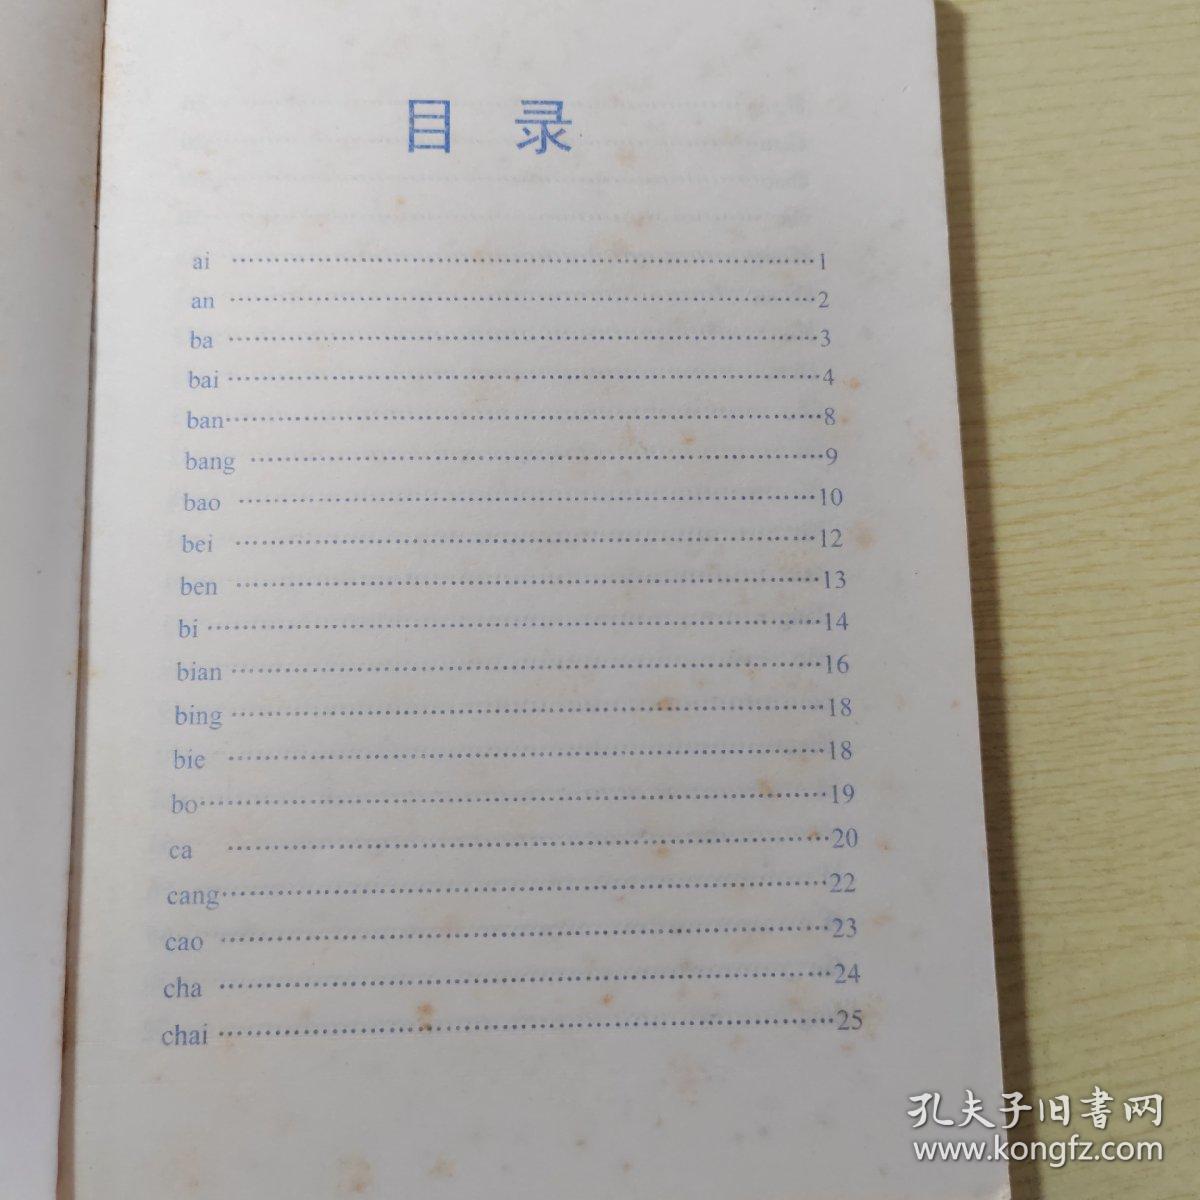 目 录
ai ……………………………………………1
an ……………………………………………2
ba ……………………………………………3
bai ……………………………………………4
ban……………………………………………8
bang ……………………………………………9
bao ……………………………………………10
bei ……………………………………………12
ben ……………………………………………13
bi ……………………………………………14
bian ……………………………………………16
bing ……………………………………………18
bie ……………………………………………18
bo……………………………………………19
ca ……………………………………………20
cang……………………………………………22
cao ……………………………………………23
cha ……………………………………………24
chai ……………………………………………25
孔夫子旧書网
www.kongfz.com